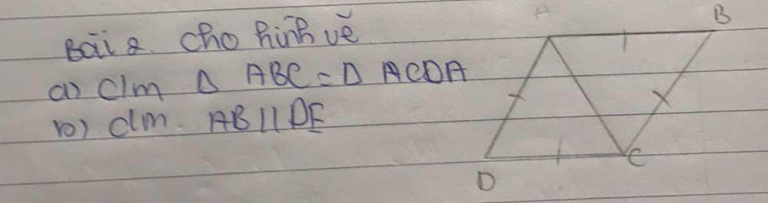 Bài 2. Cho hình vẽ
a) C/m Δ ABC = Δ ACDA
b) C/m. AB // DE
A
B
D
C